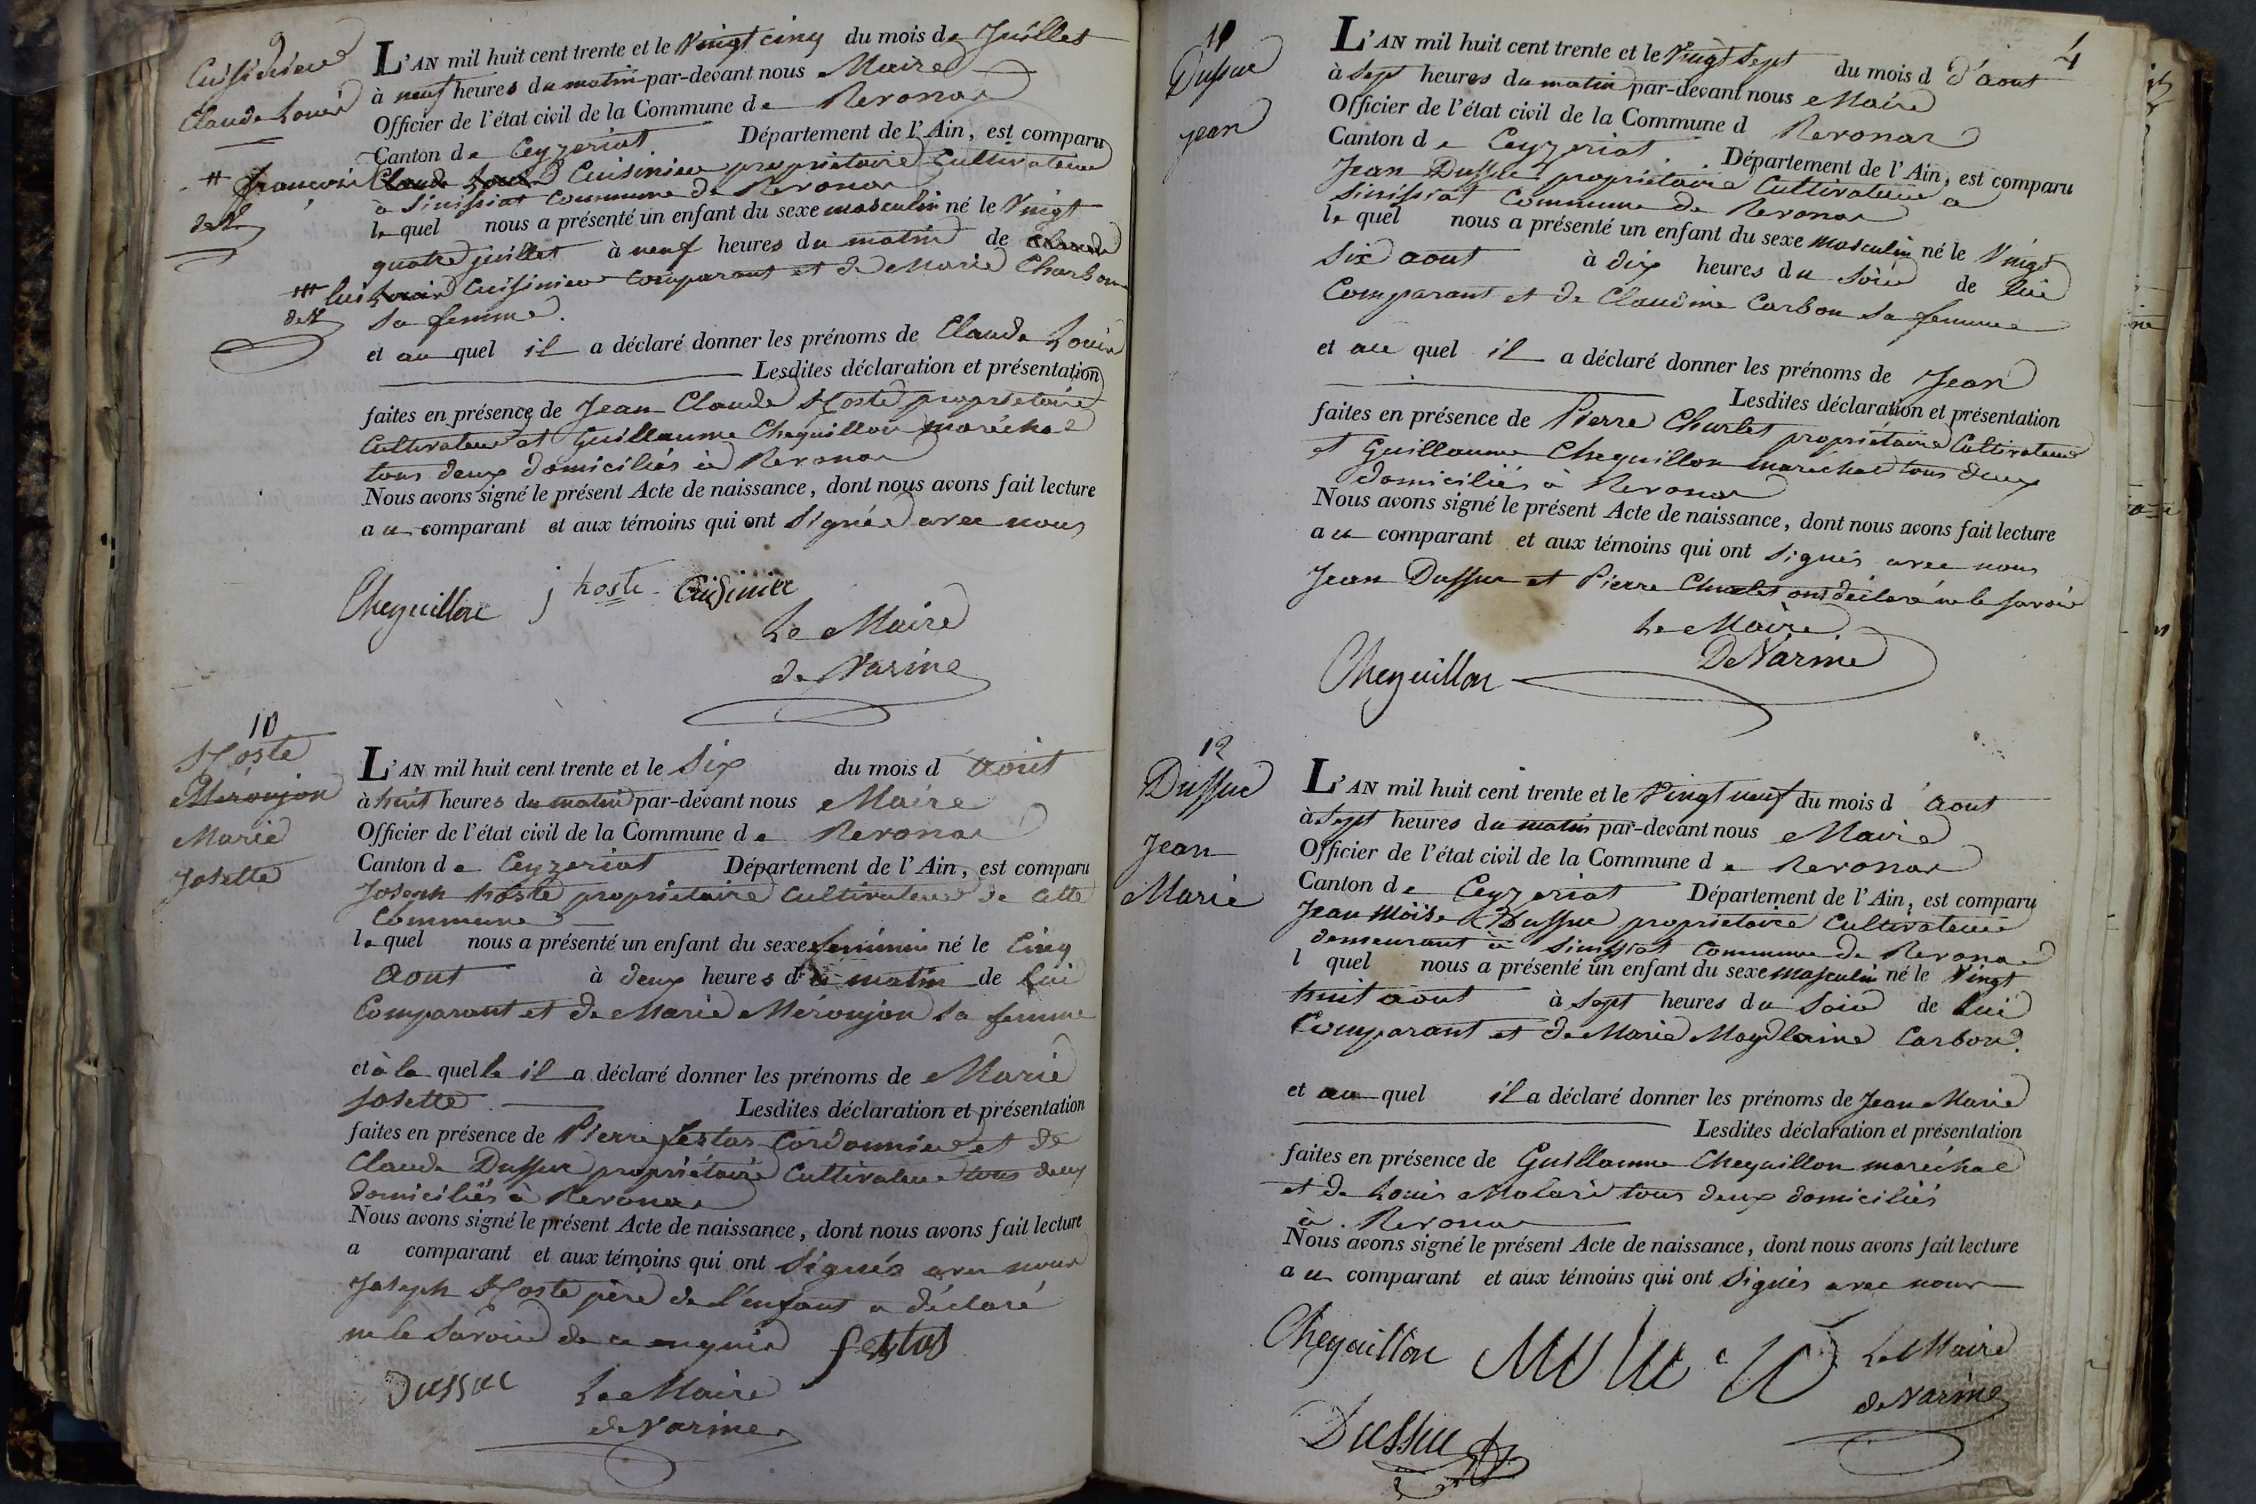 9
Cuisinier
Claude Louis
# François
de V.
### lui
de V.
L'AN mil huit cent trente et le Vingt cinq du mois de Juillet
à neuf heures du matin par-devant nous Maire
Officier de l'état civil de la Commune de Revonas
Canton de Ceyzeriat Département de l'Ain, est comparu
Claude Louis Cuisinier propriétaire Cultivateur
à Sinissiat Commune de Revonas
lequel nous a présenté un enfant du sexe masculin né le Vingt
quatre juillet à neuf heures du matin de Claude
Louis Cuisinier Comparant et de Marie Charbon
sa femme.
et au quel il a déclaré donner les prénoms de Claude Louis
Lesdites déclaration et présentation
faites en présence de Jean Claude Hoste propriétaire
Cultivateur et Guillaume Cheguillon maréchal
tous deux domiciliés à Revonas
Nous avons signé le présent Acte de naissance, dont nous avons fait lecture
au comparant et aux témoins qui ont Signée avec nous
Cheguillon j hoste Cuisinier
Le Maire
de Varine
10
Hoste
Méronjon
Marie
Josette
L'AN mil huit cent trente et le Six du mois d Août
à huit heures du matin par-devant nous Maire
Officier de l'état civil de la Commune de Revonas
Canton de Ceyzeriat Département de l'Ain, est comparu
Joseph hoste propriétaire Cultivateur de cette
Commune
lequel nous a présenté un enfant du sexe feminin né le Cinq
Aout à deux heures du matin de Lui
Comparant et de Marie Méronjon sa femme
et à la quelle il a déclaré donner les prénoms de Marie
Josette Lesdites déclaration et présentation
faites en présence de Pierre festas Cordonnier et de
Claude Dussuc propriétaire Cultivateur tous deux
domiciliés à Revonas
Nous avons signé le présent Acte de naissance, dont nous avons fait lecture
a comparant et aux témoins qui ont Signés avec nous
Joseph Hoste père de l'enfant a déclaré
ne le Savoir de ce enquis festas
Dussuc Le Maire
de Varine
4
11
Dussuc
jean
L'AN mil huit cent trente et le Vingt Sept du mois d d'aout
à Sept heures du matin par-devant nous Maire
Officier de l'état civil de la Commune d Revonas
Canton de Ceyzeriat Département de l'Ain, est comparu
Jean Dussuc propriétaire Cultivateur a
Sinissiat Commune de Revonas
le quel nous a présenté un enfant du sexe masculin né le Vingt
Six aout à dix heures du Soir de lui
Comparant et de Claudine Carbon sa femme
et au quel il a déclaré donner les prénoms de Jean
Lesdites déclaration et présentation
faites en présence de Pierre Charlet propriétaire Cultivateur
et Guillaume Cheguillon maréchal tous deux
domiciliés à Revonas
Nous avons signé le présent Acte de naissance, dont nous avons fait lecture
au comparant et aux témoins qui ont Signés avec nous
Jean Dussuc et Pierre Charlet ont déclaré ne le Savoir
Le Maire
Cheguillon De Varine
12
Dussuc
Jean
Marie
L'AN mil huit cent trente et le Vingt neuf du mois d Aout
à Sept heures du matin par-devant nous Maire
Officier de l'état civil de la Commune de Revonas
Canton de Ceyzeriat Département de l'Ain, est comparu
Jean Moïse Dussuc propriétaire Cultivateur
demeurant à Sinissiat Commune de Revonas
l quel nous a présenté un enfant du sexe masculin né le Vingt
huit aout à Sept heures du Soir de lui
Comparant et de Marie Magdlaine Carbon.
et au quel il a déclaré donner les prénoms de Jean Marie
Lesdites déclaration et présentation
faites en présence de Guillaume Cheguillon maréchal
et de Louis Molard tous deux domiciliés
à Revonas
Nous avons signé le présent Acte de naissance, dont nous avons fait lecture
au comparant et aux témoins qui ont Signés avec nous
Cheguillon Le Maire
de Varine
Dussuc